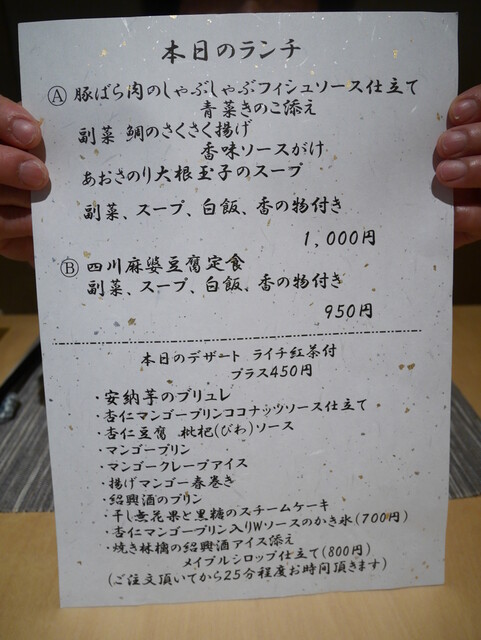 本日のランチ
Ⓐ 豚ばら肉のしゃぶしゃぶフィシュソース仕立て
青菜きのこ添え
副菜 鯛のさくさく揚げ
香味ソースがけ
あおさのり大根玉子のスープ
副菜、スープ、白飯、香の物付き
1,000円
Ⓑ 四川麻婆豆腐定食
副菜、スープ、白飯、香の物付き
950円
本日のデザート ライチ紅茶付
プラス450円
・安納芋のブリュレ
・杏仁マンゴープリンココナッツソース仕立て
・杏仁豆腐 枇杷(びわ)ソース
・マンゴープリン
・マンゴークレープアイス
・揚げマンゴー春巻き
・紹興酒のプリン
・干し無花果と黒糖のスチームケーキ
・杏仁マンゴープリン入りWソースのかき氷(700円)
・焼き林檎の紹興酒アイス添え
メイプルシロップ仕立て(800円)
(ご注文頂いてから25分程度お時間頂きます)